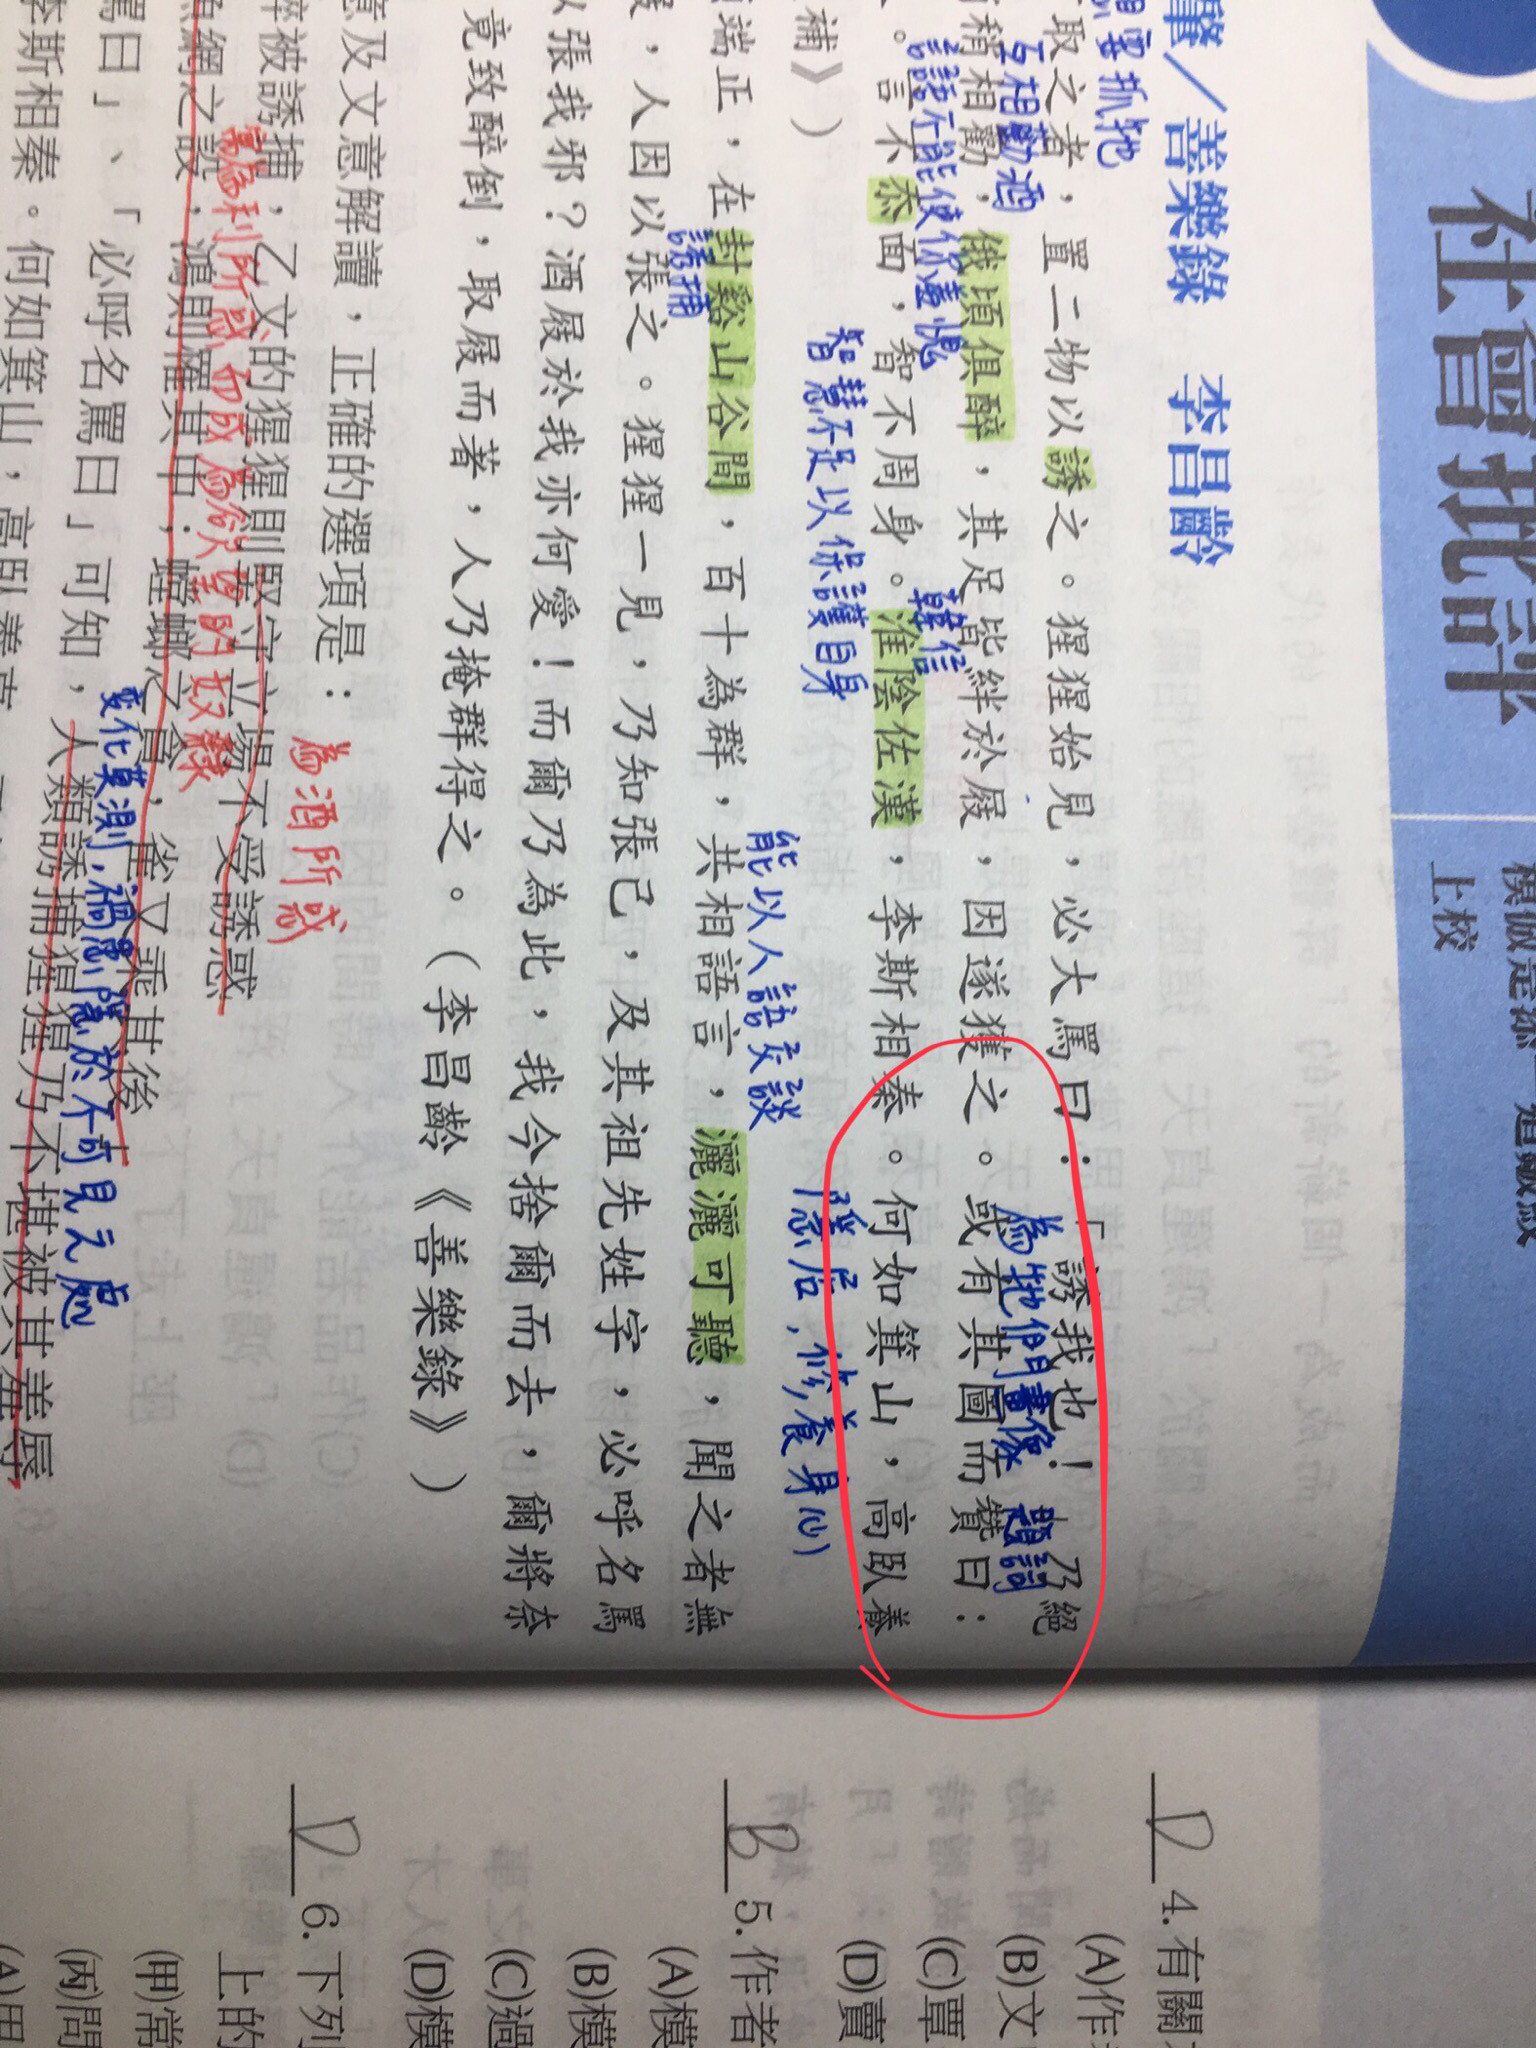 社會批評
模擬是添一道皺紋
上校
肇／善樂錄　李昌齡
想要抓牠
取之者，置二物以誘之。猩猩始見，必大罵曰：「誘我也！」乃絕
互相勸酒
為牠們畫像 題詞
稍相勸，俄頃俱醉，其足皆絆於屐，因遂獲之。或有其圖而贊曰：
話語不能使你羞愧
韓信
。言不忝面，智不周身。淮陰佐漢，李斯相秦。何如箕山，高臥養
智慧不足以保護自身
隱居，修養身心
補》）
能以人語交談
端正，在封谿山谷間，百十為群，共相語言，灑灑可聽，聞之者無
誘捕
，人因以張之。猩猩一見，乃知張己，及其祖先姓字，必呼名罵
以張我邪？酒屐於我亦何愛！而爾乃為此，我今捨爾而去，爾將奈
竟致醉倒，取屐而著，人乃掩群得之。（李昌齡《善樂錄》）
意及文意解讀，正確的選項是：
為酒所惑
醉被誘捕，乙文的猩猩則堅守立場不受誘惑
寓為利所惑而成為欲望的奴隸
魚網之設，鴻則罹其中；螳螂之貪，雀又乘其後
變化莫測，禍患隱於不可見之處
罵曰」、「必呼名罵曰」可知，人類誘捕猩猩乃不堪被其羞辱
李斯相秦。何如箕山，高臥養
D 4.有關
(A)作
(B)文
(C)覃
(D)賣
B 5.作者
(A)模
(B)模
(C)過
(D)模
D 6.下列
上的
(甲)常
(丙)問
(A)甲